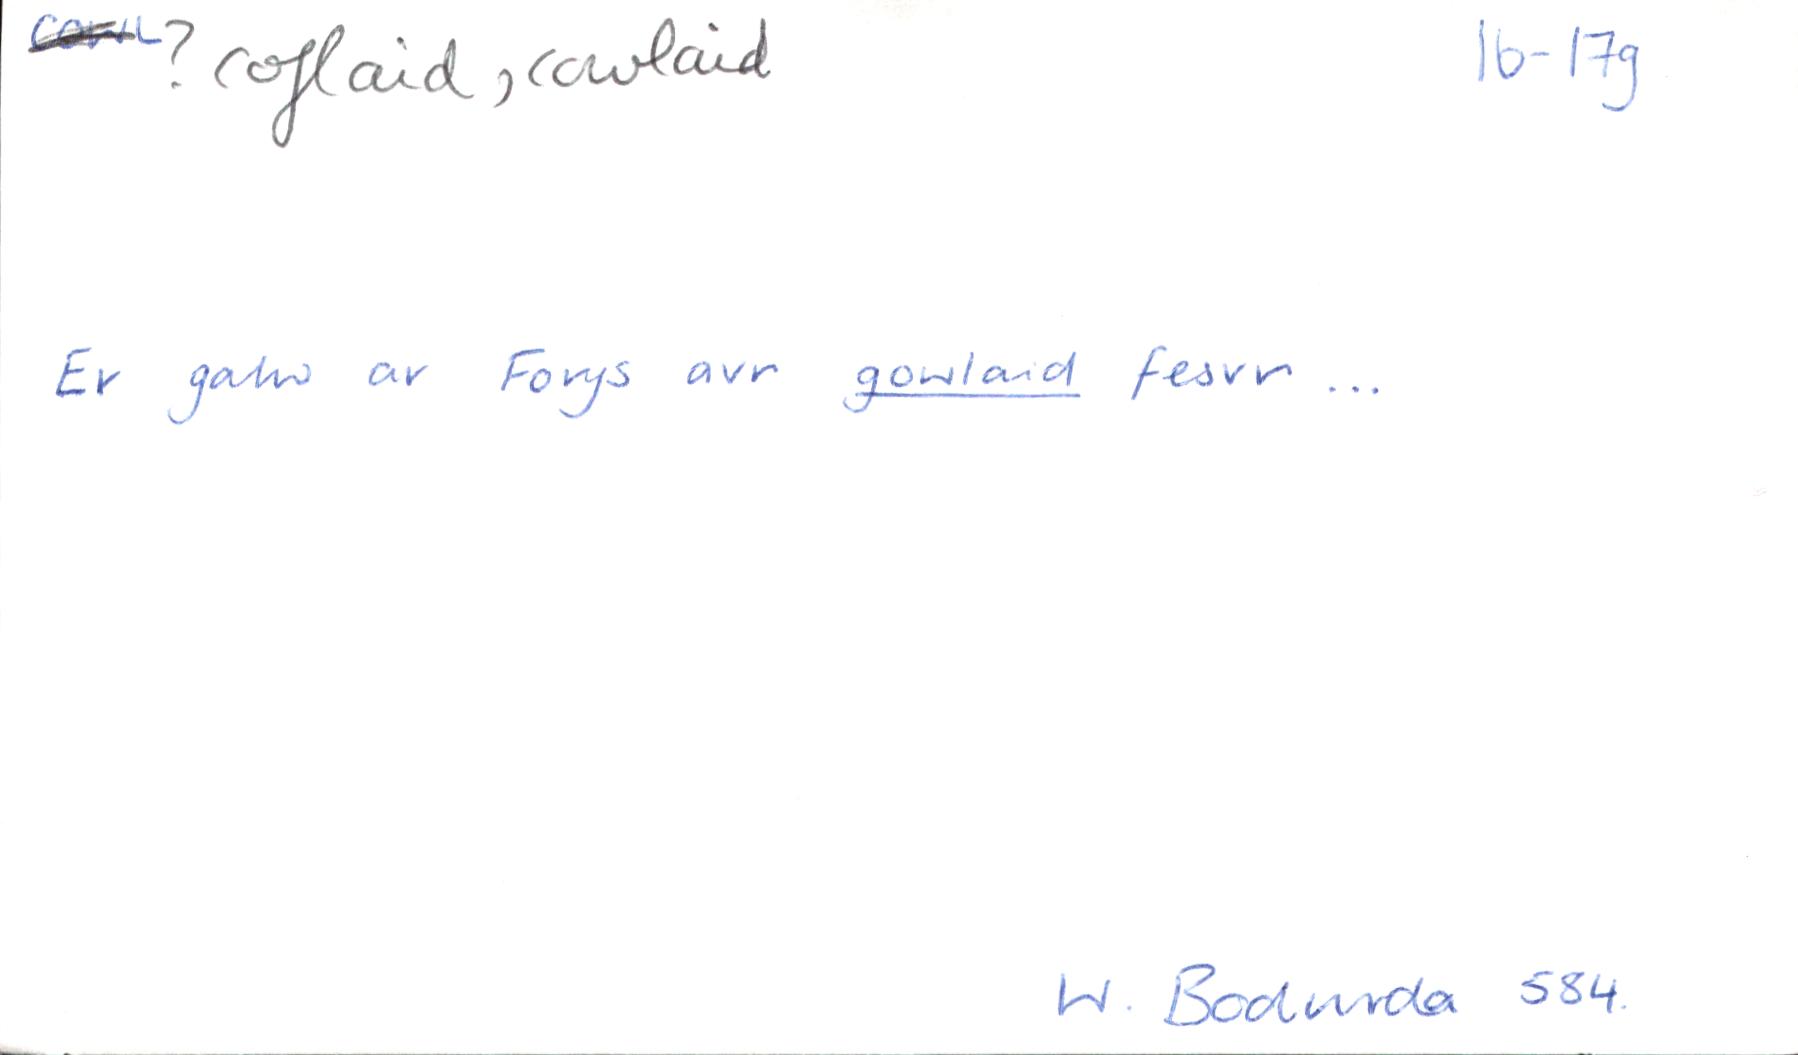 ? coflaid, cowlaid 16-17g
Er galw ar Forys avr gowlaid fesvr ...
W. Bodwrda 584.